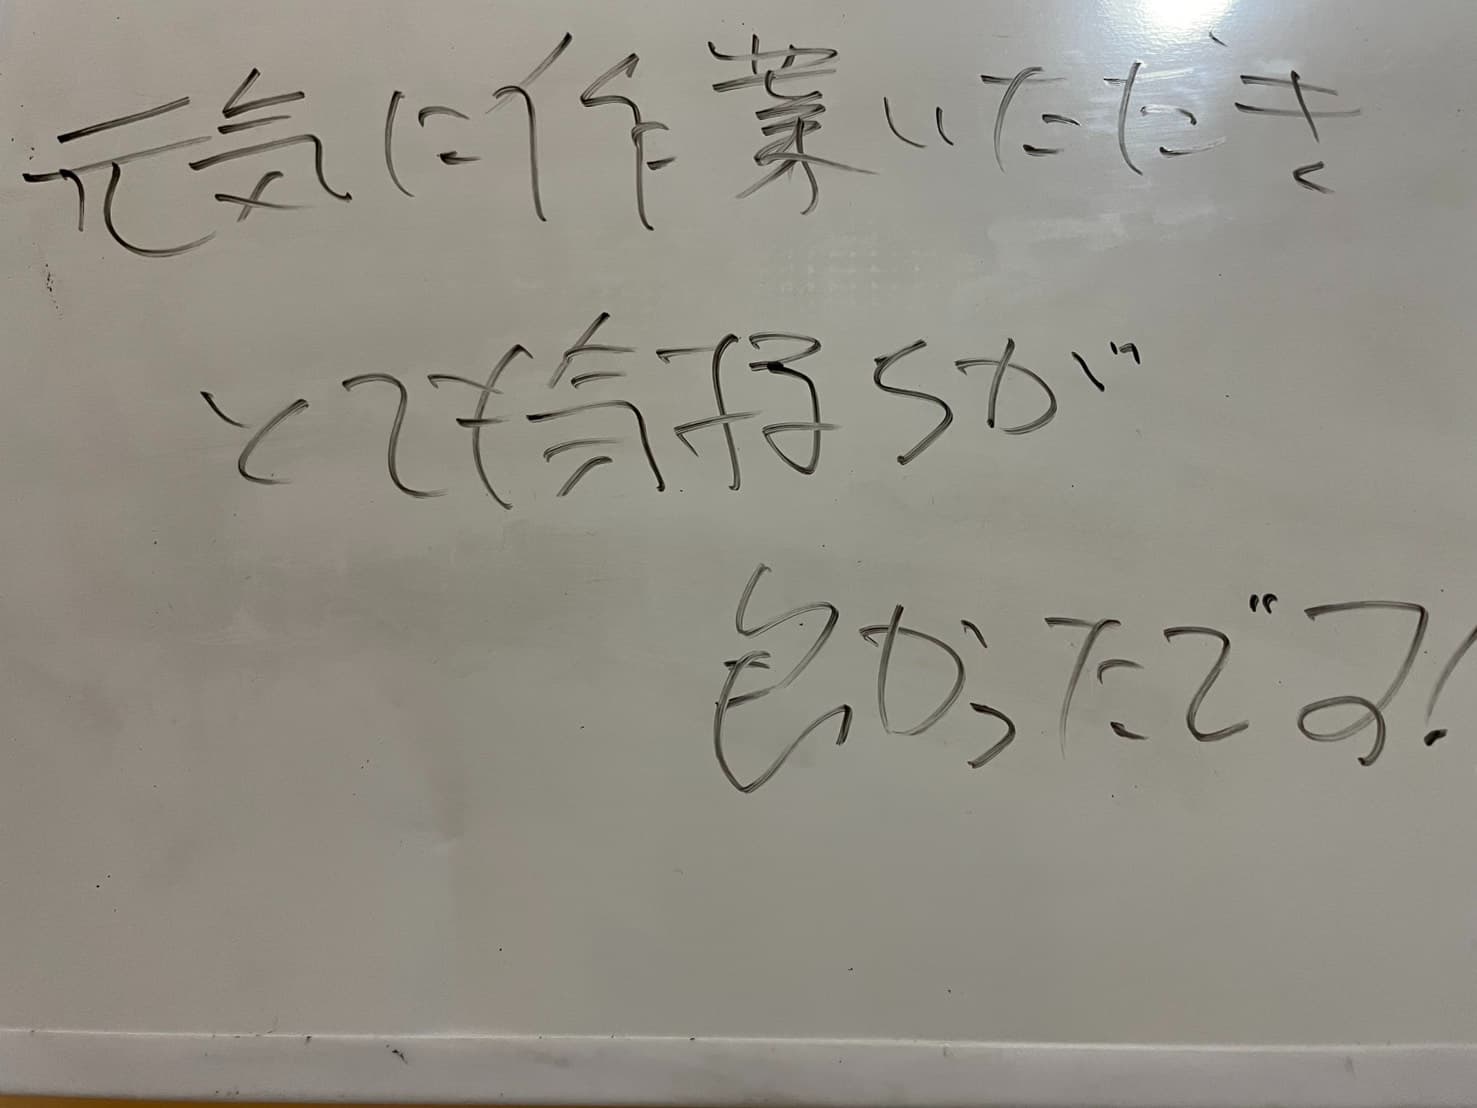 元気に作業いただき
とても気持ちが
良かったです!